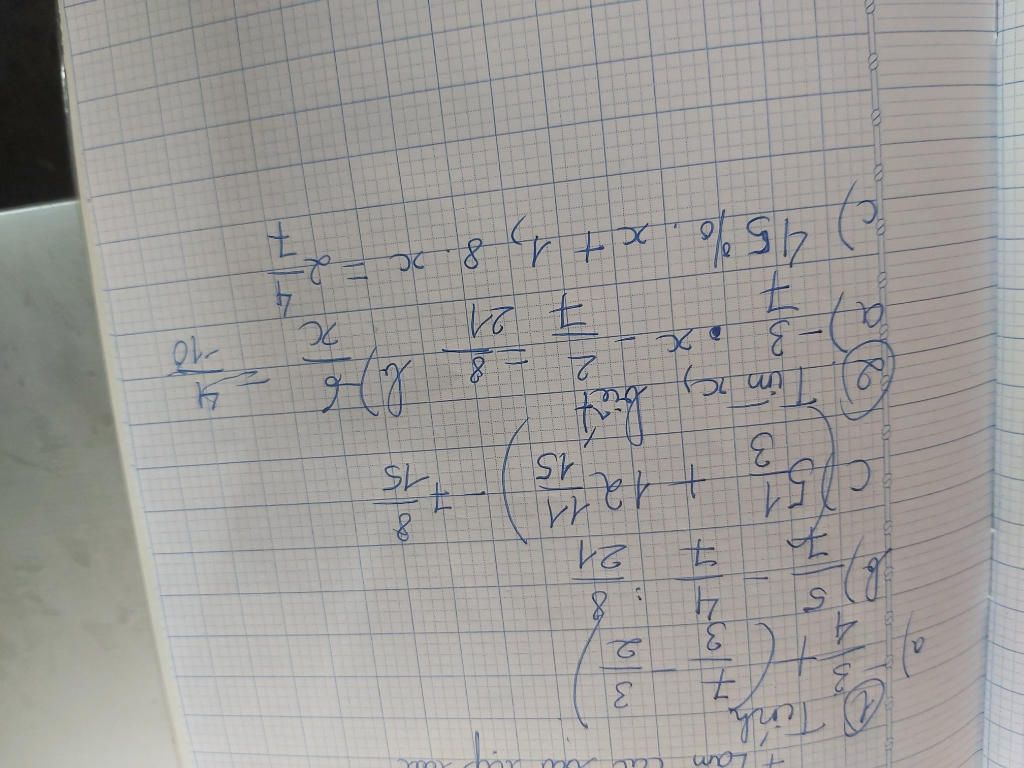 + Làm các bài tập sau
① Tính
a) 3/4 + (7/3 - 3/2)
b) 5/7 - 4/7 : 8/21
c) (5 1/3 + 12 11/15) - 7 8/15
② Tìm x, biết
a) -3/7 . x - 2/7 = 8/21 b) -6/x = 4/-10
c) 45%. x + 1,8. x = 2 4/7